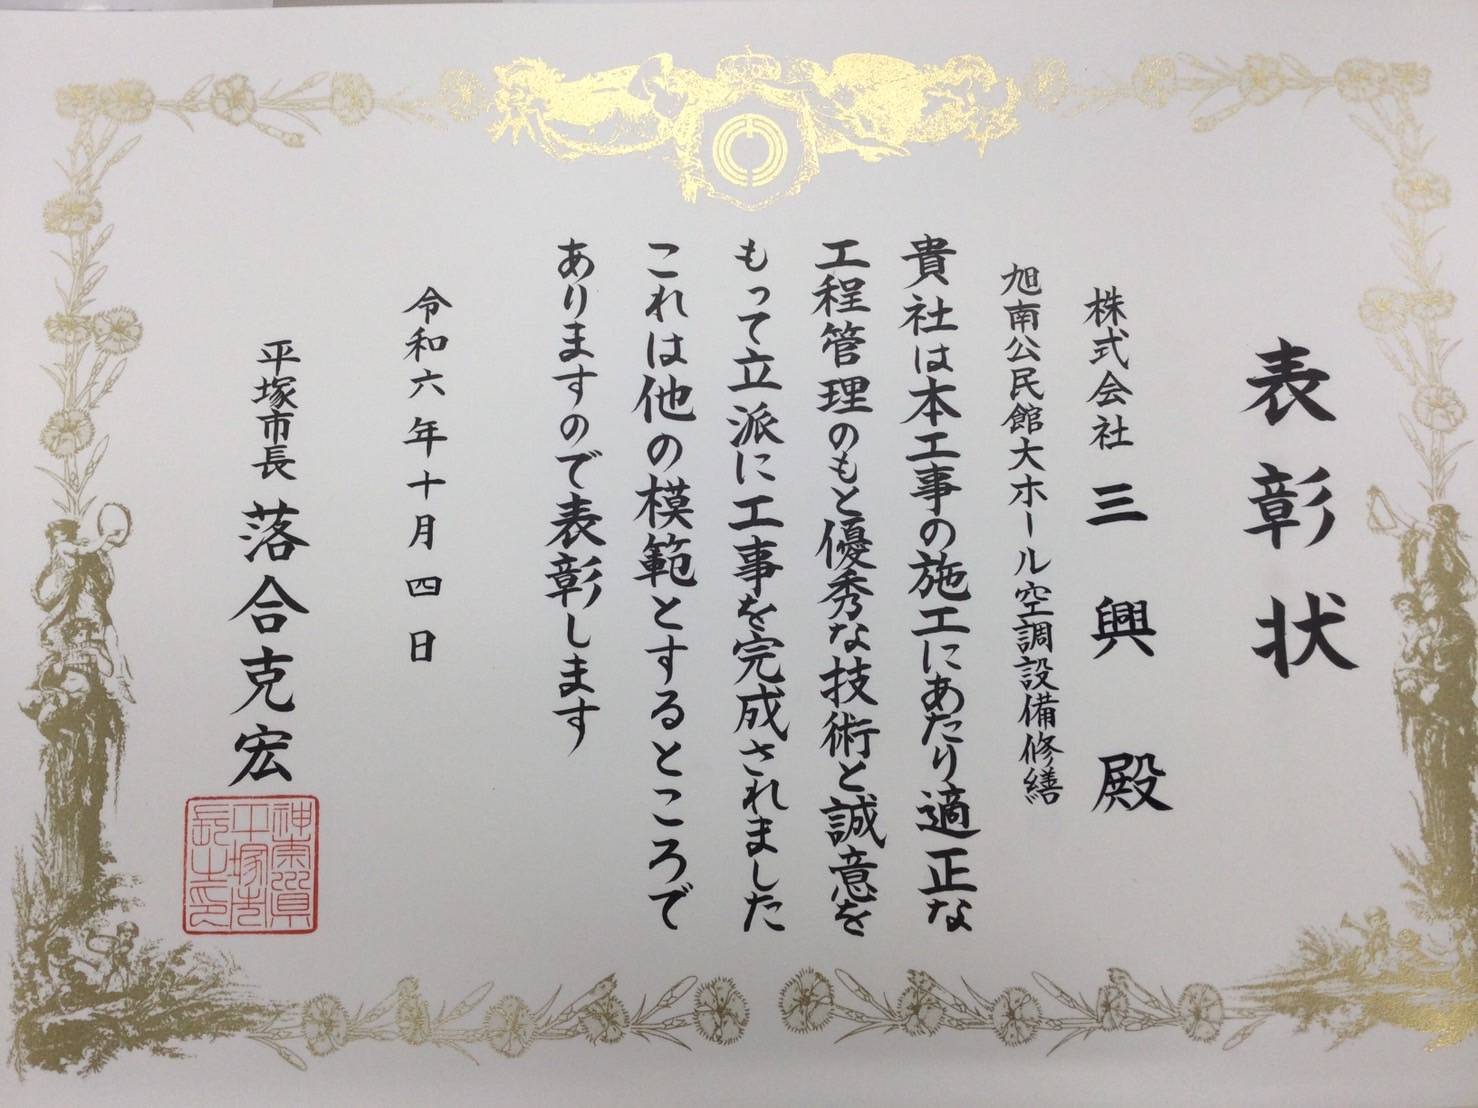 表彰状
株式会社 三興 殿
旭南公民館大ホール空調設備修繕
貴社は本工事の施工にあたり適正な
工程管理のもと優秀な技術と誠意を
もって立派に工事を完成されました
これは他の模範とするところで
ありますので表彰します
令和六年十月四日
平塚市長 落合克宏
神奈川県
平塚市
長之印